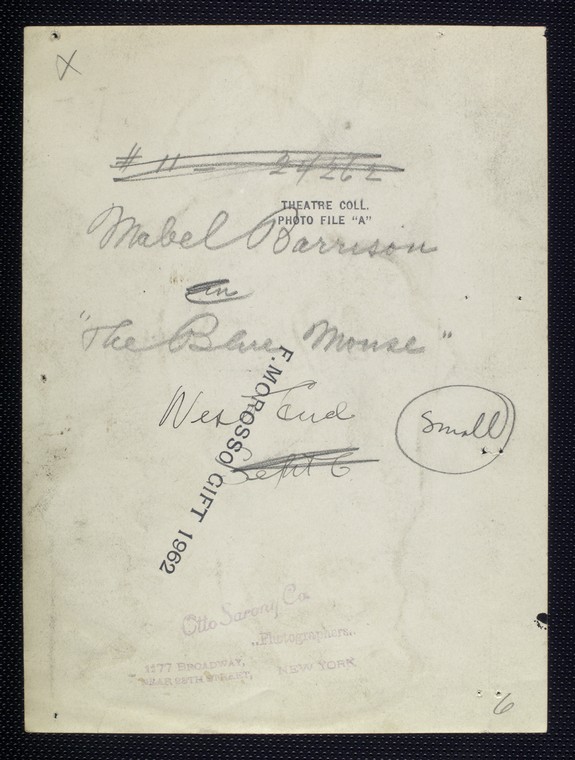 X
# 11 - 24262
THEATRE COLL.
PHOTO FILE "A"
Mabel Barrison
in
"The Blue Mouse"
West End
Small
Sept 6
F. MOROSSO GIFT 1962
Otto Sarony Co.
Photographers
1177 BROADWAY,
NEAR 28TH STREET,
NEW YORK
6